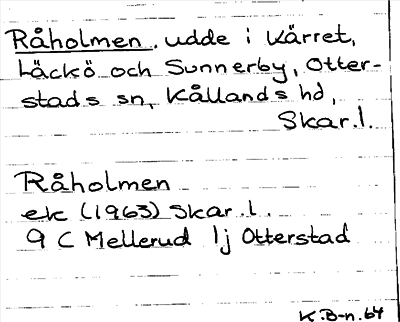 Råholmen, udde i Kärret,
Läckö och Sunnerby, Otter-
stads sn, Kållands hd,
Skar.l.
Råholmen
ek (1963) Skar.l.
9 C Mellerud lj Otterstad
K.B-n.64